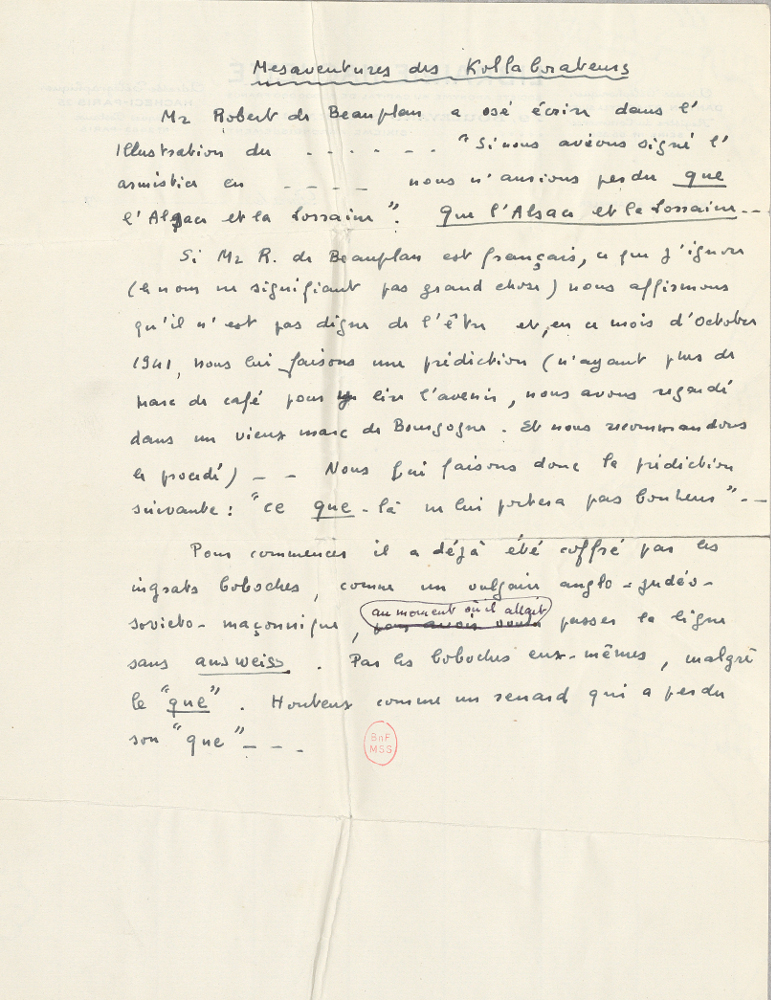 Mesaventures des Kollaborateurs
Mr Robert de Beauplan a osé écrire dans l'
Illustration du - - - - - - "Si nous avions signé l'
armistice en - - - - nous n'aurions perdu que
l'Alsace et la Lorraine". Que l'Alsace et la Lorraine---
Si Mr R. de Beauplan est français, ce que j'ignore
(le nom ne signifiant pas grand chose) nous affirmons
qu'il n'est pas digne de l'être et, en ce mois d'Octobre
1941, nous lui faisons une prédiction (n'ayant plus de
marc de café pour y lire l'avenir, nous avons regardé
dans un vieux marc de Bourgogne. Et nous recommandons
le procédé) - - Nous lui faisons donc la prédiction
suivante : "ce que-là ne lui portera pas bonheur"---
Pour commencer il a déjà été coffré par les
ingrats boboches, comme un vulgaire anglo-judéo-
soviéto-maçonnique, pour avoir voulu au moment où il allait passer la ligne
sans answeiss. Par les boboches eux-mêmes, malgré
le "que". Honteux comme un renard qui a perdu
son "que"- - -
BnF
MSS